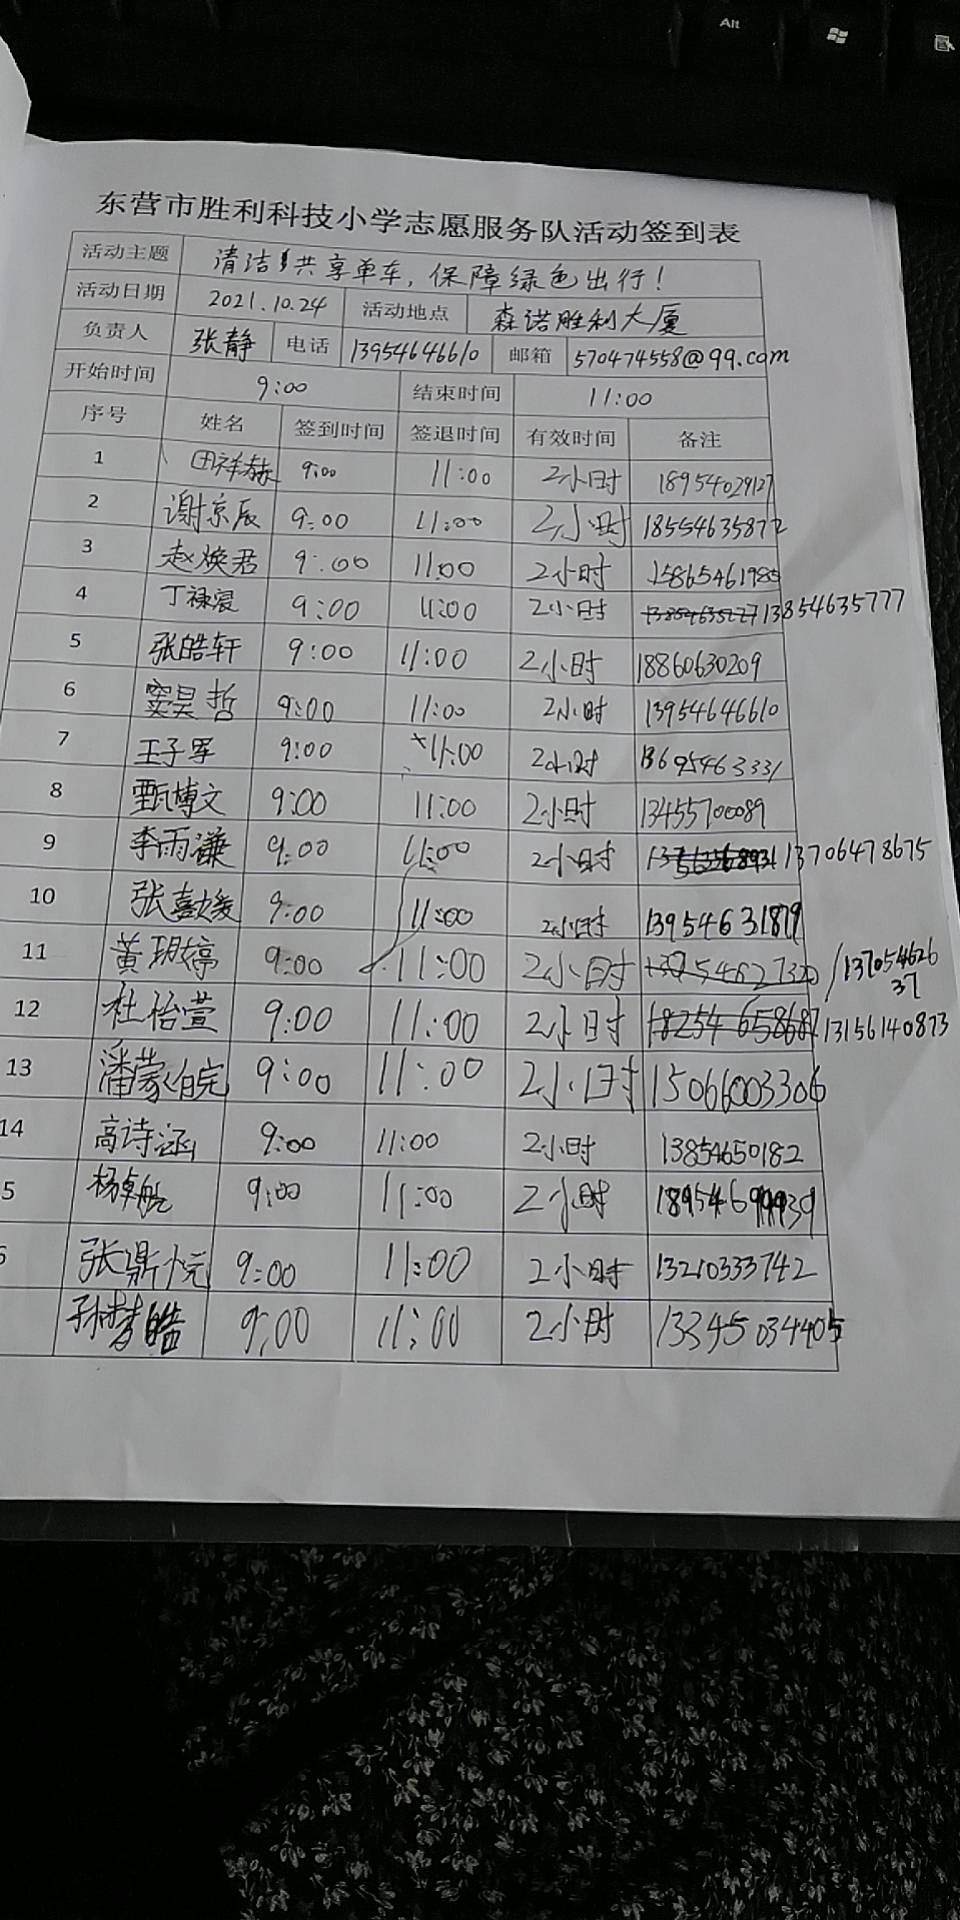 Alt
东营市胜利科技小学志愿服务队活动签到表
活动主题 清洁共享单车，保障绿色出行！
活动日期 2021.10.24 活动地点 森诺胜利大厦
负责人 张静 电话 13954646610 邮箱 570474558@qq.com
开始时间 9:00 结束时间 11:00
序号 姓名 签到时间 签退时间 有效时间 备注
1 田祥赫 9:00 11:00 2小时 18954029127
2 谢京辰 9:00 11:00 2小时 18554635872
3 赵焕君 9:00 11:00 2小时 15865461985
4 丁禄宸 9:00 11:00 2小时 13854635777
5 张皓轩 9:00 11:00 2小时 18860630209
6 窦昊哲 9:00 11:00 2小时 13954646610
7 王子军 9:00 11:00 2小时 13695463331
8 甄博文 9:00 11:00 2小时 13455700089
9 李雨谦 9:00 11:00 2小时 13706478675
10 张嘉媛 9:00 11:00 2小时 13954631879
11 黄玥婷 9:00 11:00 2小时 13954627320 /13705462637
12 杜怡萱 9:00 11:00 2小时 18254658687 13156140873
13 潘蒙皖 9:00 11:00 2小时 15066003306
14 高诗涵 9:00 11:00 2小时 13854650182
5 杨卓航 9:00 11:00 2小时 18954699939
张鼎悦 9:00 11:00 2小时 13210333742
孙梦皓 9:00 11:00 2小时 13345034405